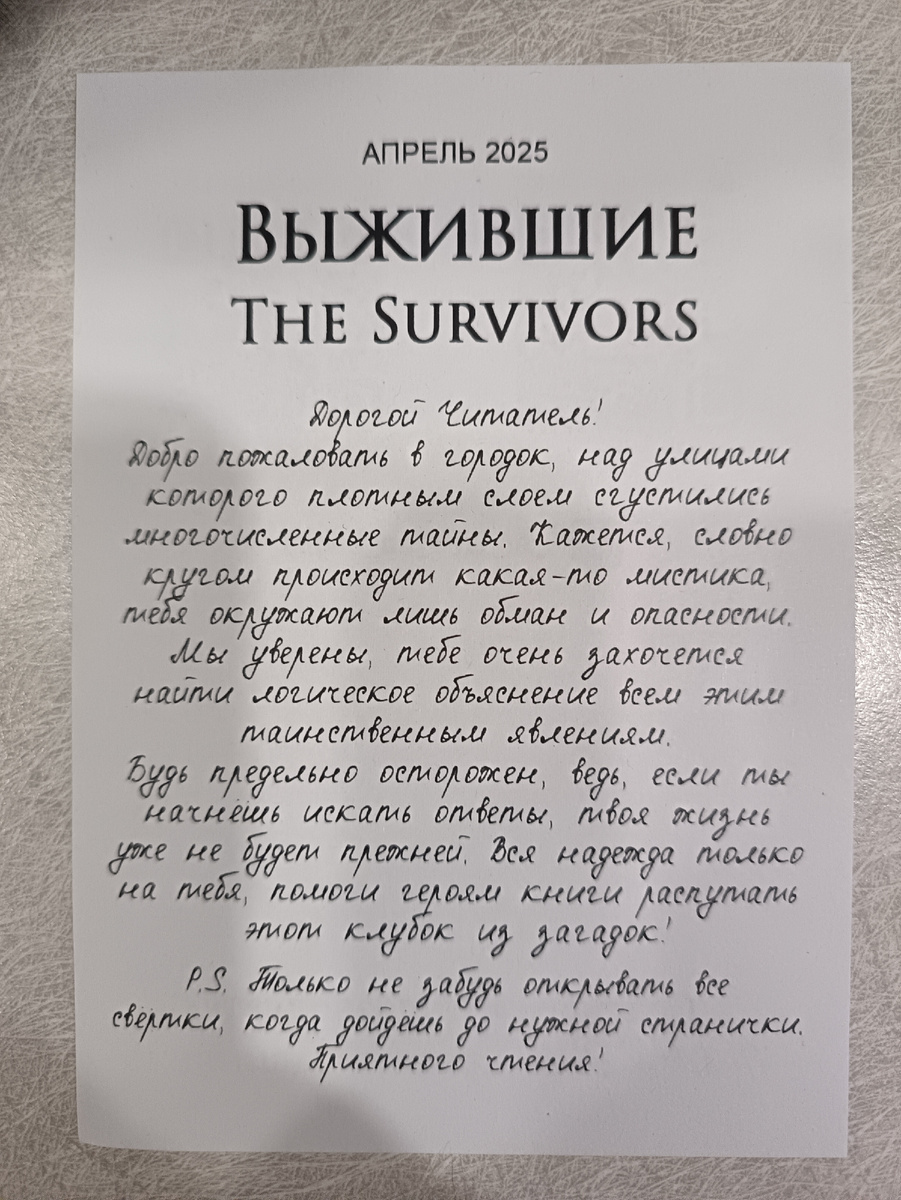 АПРЕЛЬ 2025
ВЫЖИВШИЕ
THE SURVIVORS
Дорогой Читатель!
Добро пожаловать в городок, над улицами
которого плотным слоем сгустились
многочисленные тайны. Кажется, словно
кругом происходит какая-то мистика,
тебя окружают лишь обман и опасности.
Мы уверены, тебе очень захочется
найти логическое объяснение всем этим
таинственным явлениям.
Будь предельно осторожен, ведь, если ты
начнёшь искать ответы, твоя жизнь
уже не будет прежней. Вся надежда только
на тебя, помоги героям книги распутать
этот клубок из загадок!
P.S. Только не забудь открывать все
свёртки, когда дойдёшь до нужной странички.
Приятного чтения!